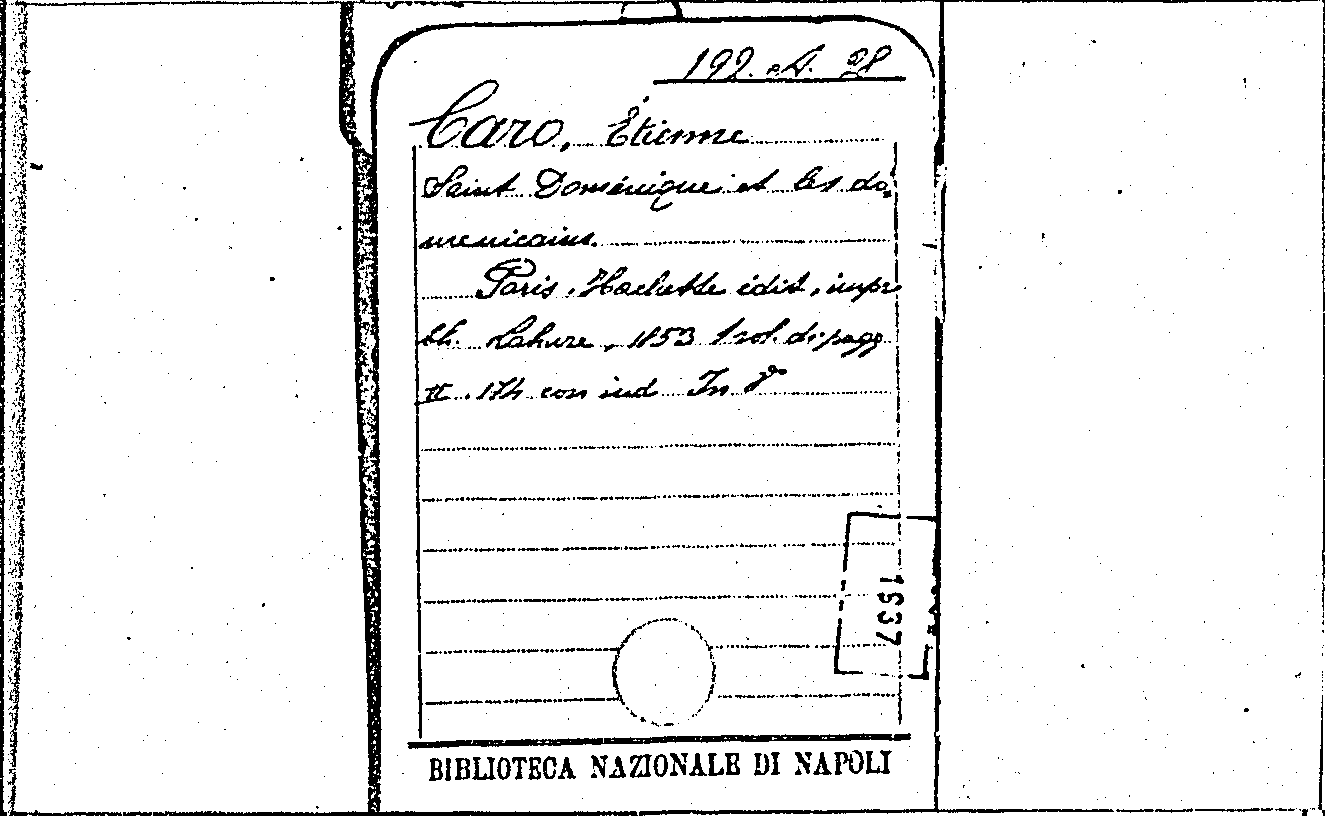 192. A. 28
Caro, Étienne
Saint Doménique et les do,
menicains.
Paris, Hachette édit, impr
Ch. Lahure, 1853 1 vol. di pagg
II. 174 con ind In 8°
1937
BIBLIOTECA NAZIONALE DI NAPOLI